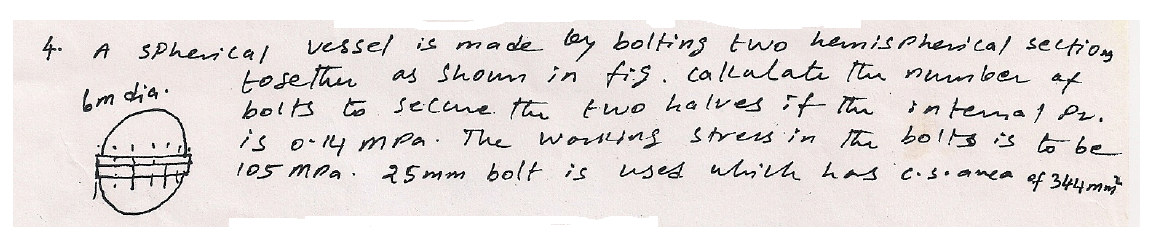 4. A spherical vessel is made by bolting two hemispherical sections
together as shown in fig. calculate the number of
6m dia.
bolts to secure the two halves if the internal Pr.
is 0.14 MPa. The working stress in the bolts is to be
105 MPa. 25mm bolt is used which has c.s.area of 344mm²